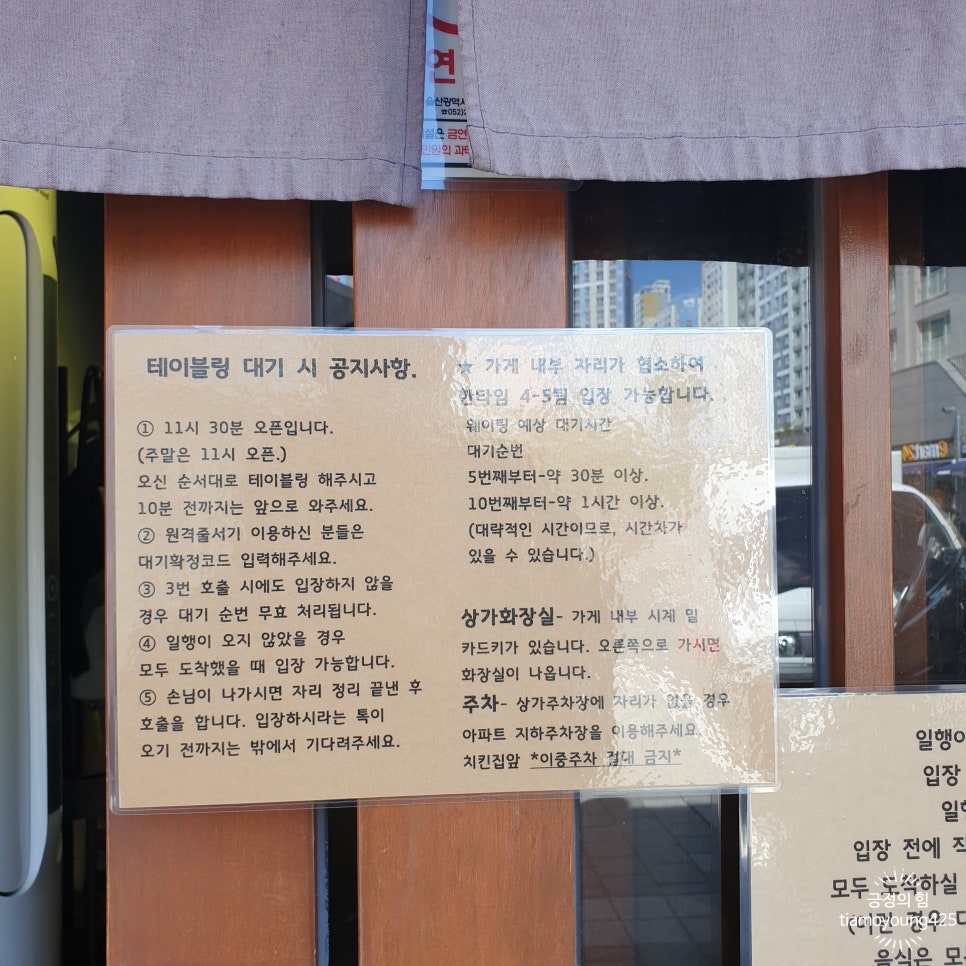 연
산광역시
☎052)2
설은 금연
만원의 과태
테이블링 대기 시 공지사항.
① 11시 30분 오픈입니다.
(주말은 11시 오픈.)
오신 순서대로 테이블링 해주시고
10분 전까지는 앞으로 와주세요.
② 원격줄서기 이용하신 분들은
대기확정코드 입력해주세요.
③ 3번 호출 시에도 입장하지 않을
경우 대기 순번 무효 처리됩니다.
④ 일행이 오지 않았을 경우
모두 도착했을 때 입장 가능합니다.
⑤ 손님이 나가시면 자리 정리 끝낸 후
호출을 합니다. 입장하시라는 톡이
오기 전까지는 밖에서 기다려주세요.
★ 가게 내부 자리가 협소하여
한타임 4-5팀 입장 가능합니다.
웨이팅 예상 대기시간
대기순번
5번째부터-약 30분 이상.
10번째부터-약 1시간 이상.
(대략적인 시간이므로, 시간차가
있을 수 있습니다.)
상가화장실- 가게 내부 시계 밑
카드키가 있습니다. 오른쪽으로 가시면
화장실이 나옵니다.
주차- 상가주차장에 자리가 없을 경우
아파트 지하주차장을 이용해주세요.
치킨집앞 *이중주차 절대 금지*
emart24
일행이
입장
일행
입장 전에 직
모두 도착하실
(이런 경우 다
음식은 모
긍정의 힘
tiamoyoung425